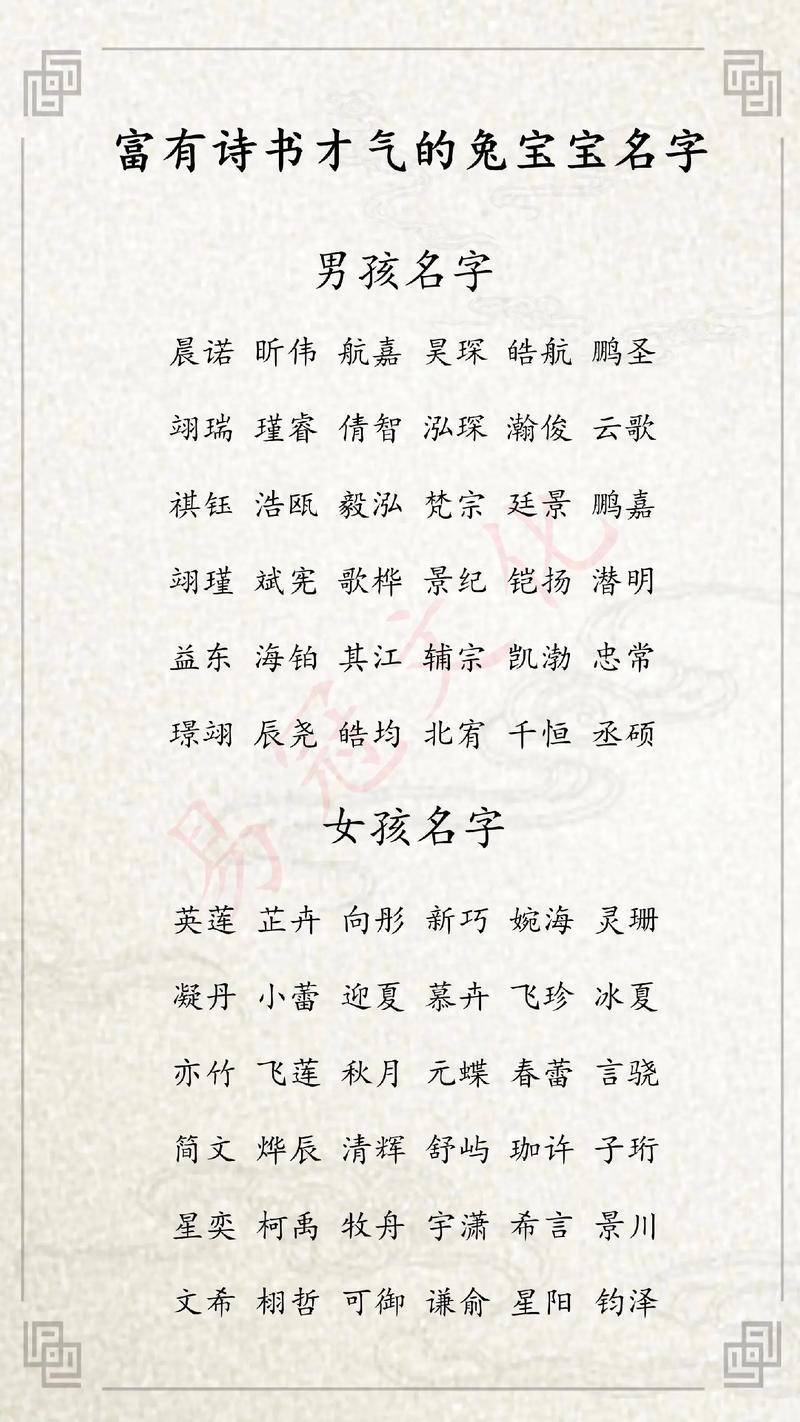 富有诗书才气的兔宝宝名字
男孩名字
晨诺 昕伟 航嘉 昊琛 皓航 鹏圣
翊瑞 瑾睿 倩智 泓琛 瀚俊 云歌
祺钰 浩瓯 毅泓 梵宗 廷景 鹏嘉
翊瑾 斌宪 歌桦 景纪 铠扬 潜明
益东 海铂 其江 辅宗 凯渤 忠常
璟翊 辰尧 皓均 北宥 千恒 丞硕
女孩名字
英莲 芷卉 向彤 新巧 婉海 灵珊
凝丹 小蕾 迎夏 慕卉 飞珍 冰夏
亦竹 飞莲 秋月 元蝶 春蕾 言骁
简文 烨辰 清辉 舒屿 珈许 子珩
星奕 柯禹 牧舟 宇潇 希言 景川
文希 栩哲 可御 谦俞 星阳 钧泽
易冠文化